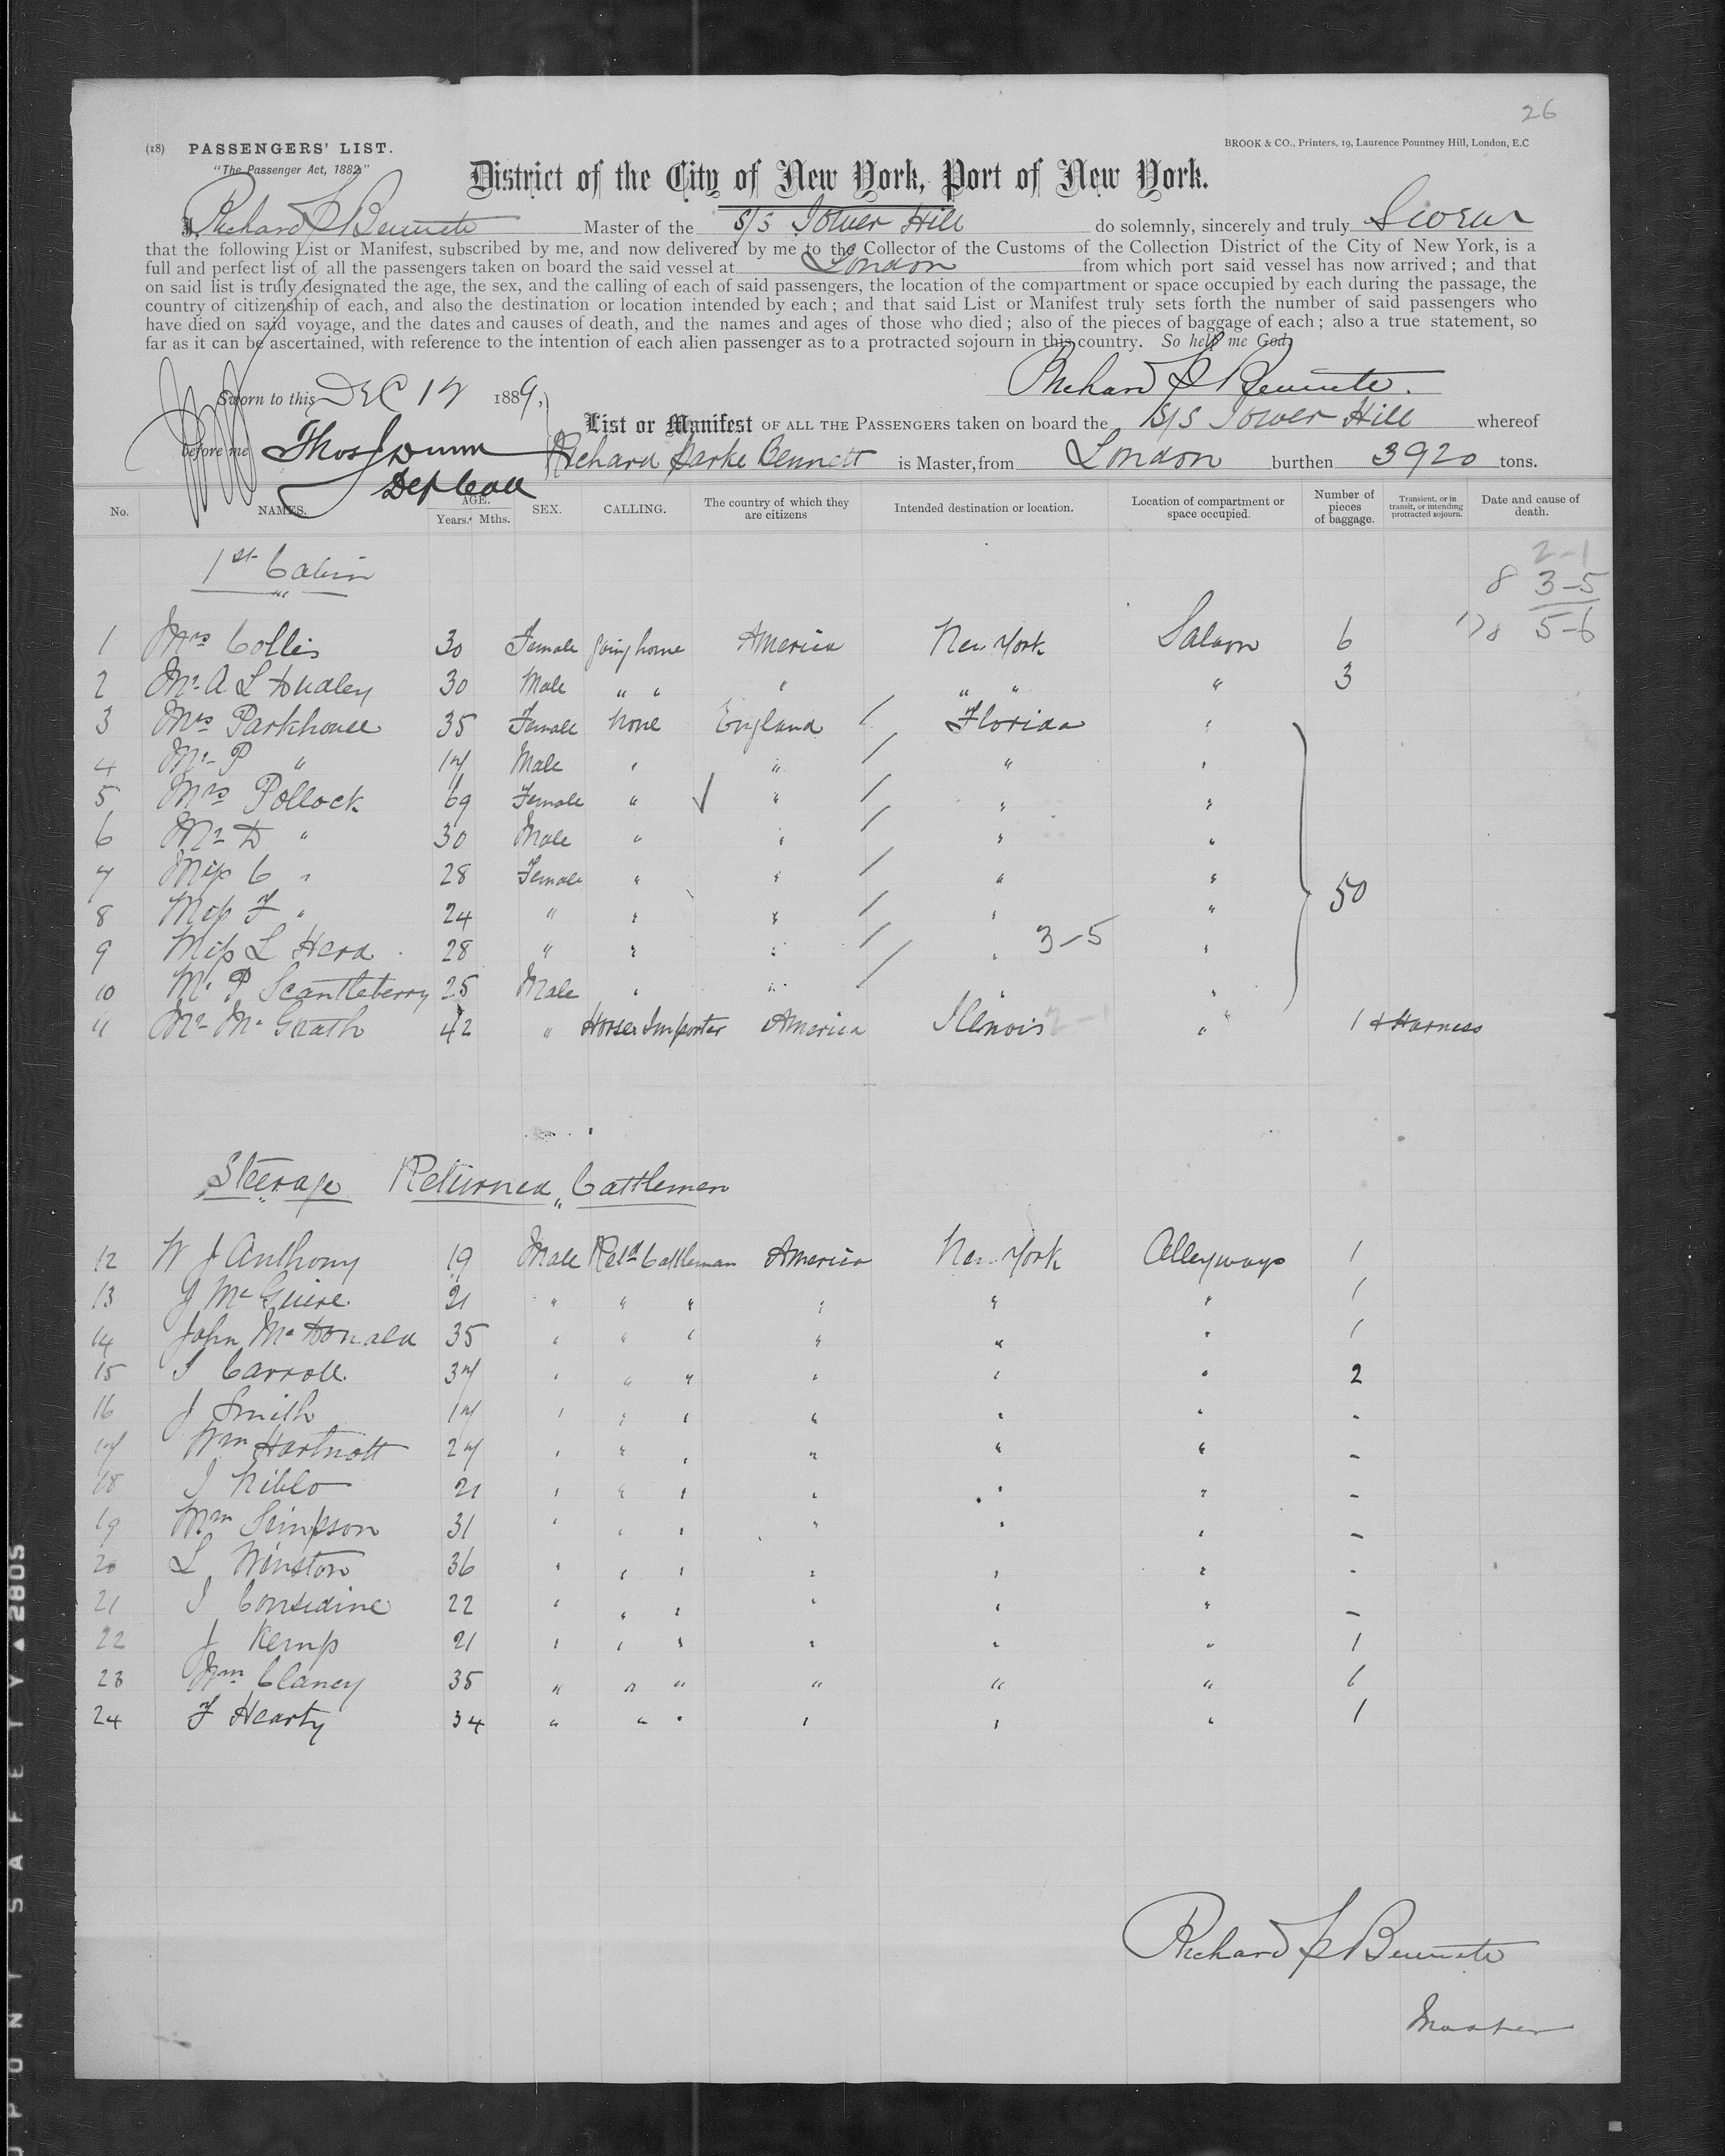 26
(18) PASSENGERS' LIST.
BROOK & CO., Printers, 19, Laurence Pountney Hill, London, E.C
"The Passenger Act, 1882,"
District of the City of New York, Port of New York.
I, Richard P Bennett Master of the S/S Tower Hill do solemnly, sincerely and truly Swear
that the following List or Manifest, subscribed by me, and now delivered by me to the Collector of the Customs of the Collection District of the City of New York, is a
full and perfect list of all the passengers taken on board the said vessel at London from which port said vessel has now arrived; and that
on said list is truly designated the age, the sex, and the calling of each of said passengers, the location of the compartment or space occupied by each during the passage, the
country of citizenship of each, and also the destination or location intended by each; and that said List or Manifest truly sets forth the number of said passengers who
have died on said voyage, and the dates and causes of death, and the names and ages of those who died; also of the pieces of baggage of each; also a true statement, so
far as it can be ascertained, with reference to the intention of each alien passenger as to a protracted sojourn in this country. So help me God.
Richard P Bennett.
Sworn to this DEC 12 1889,
before me Thos J Dunn
List or Manifest OF ALL THE PASSENGERS taken on board the S/S Tower Hill whereof
Richard Parke Bennett is Master, from London burthen 3920 tons.
No. NAMES. AGE. Years. Mths. SEX. CALLING. The country of which they are citizens Intended destination or location. Location of compartment or space occupied. Number of pieces of baggage. Transient, or in transit, or intending protracted sojourn. Date and cause of death.
1st Cabin
2-1
8 3-5
178 5-6
1 Mrs Collis 30 Female going home America New York Saloon 6
2 Mr A L Dudley 30 Male " " " " " " 3
3 Mrs Parkhouse 35 Female None England / Florida "
4 Mr P " 17 Male " " / " "
5 Mrs Pollock 69 Female " ✓ " / " "
6 Mr D " 30 Male " " / " "
7 Miss C " 28 Female " " / " " 50
8 Miss F " 24 " " " / " "
9 Miss L Herd 28 " " " / " 3-5 "
10 Mr P Scantleberry 25 Male " " / " "
11 Mr Mc Grath 42 " Horse Importer America Illinois 2-1 " 1 & Harness
Steerage Returned Cattlemen
12 W J Anthony 19 Male Retd Cattleman America New York Alleyways 1
13 J Mc Guire 21 " " " " " " 1
14 John Mc Donald 35 " " " " " " 1
15 J Carroll 37 " " " " " " 2
16 J Smith 17 " " " " " " -
17 Wm Hartnott 27 " " " " " " -
18 J Niblo 21 " " " " " " -
19 Wm Simpson 31 " " " " " " -
20 L Winston 36 " " " " " " -
21 J Considine 22 " " " " " " -
22 J Kemp 21 " " " " " " 1
23 Wm Clancy 35 " " " " " " 1
24 F Hearty 34 " " " " " " 1
Richard P Bennett
Master
SAFETY ▲ 2805